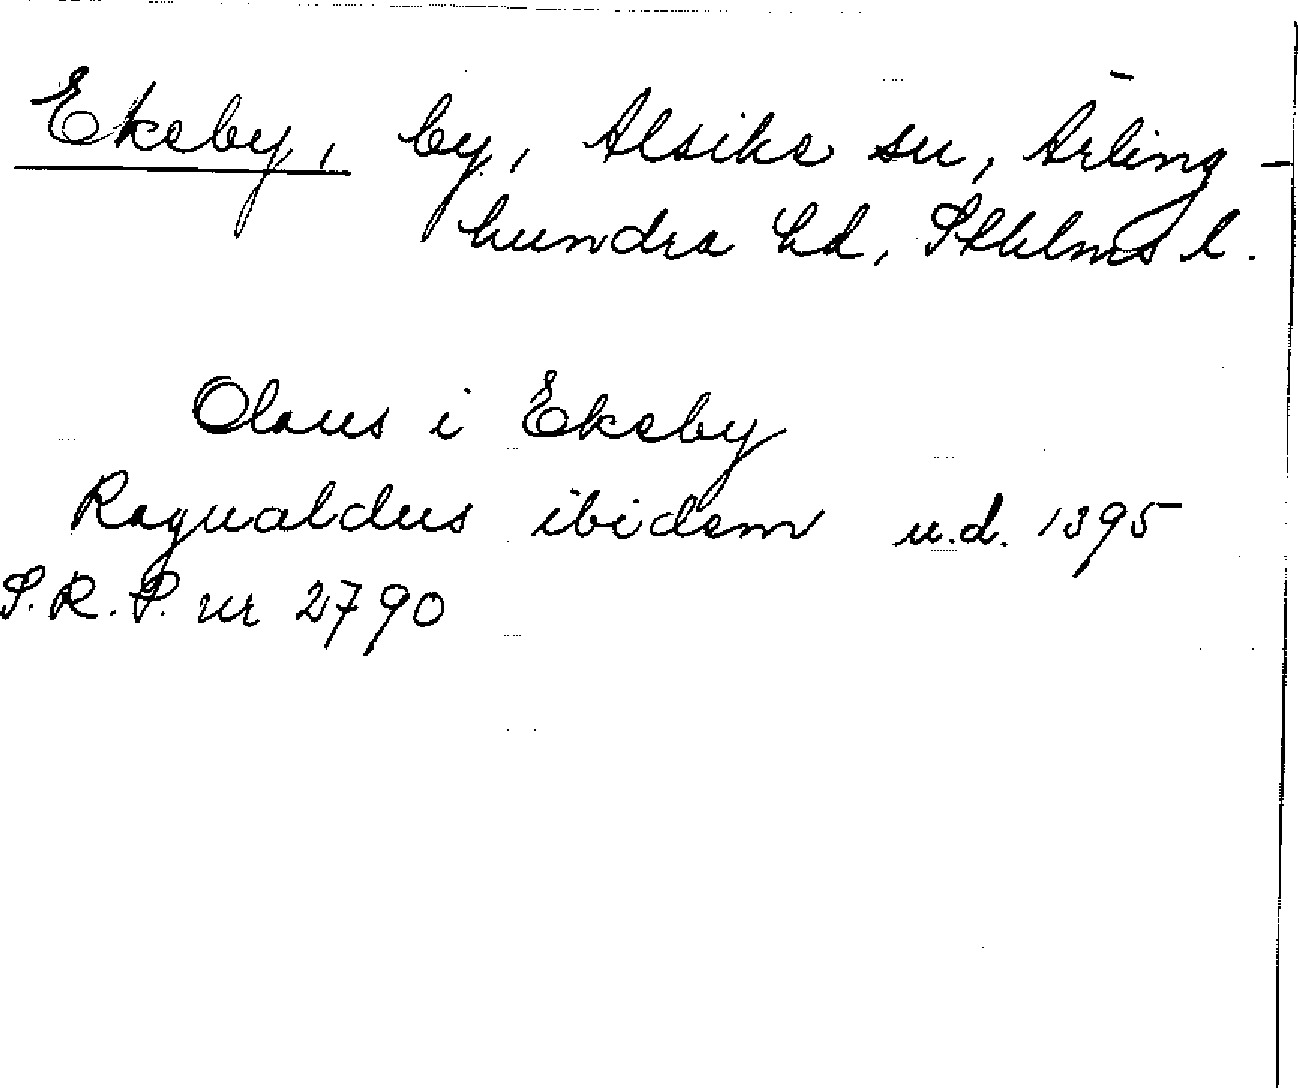 Ekeby, by, Alsike sn, Ärling-
hundra hd, Sthlms l.
Olaus i Ekeby
Ragualdus ibidem u.d. 1395
S.R.P. nr 2790